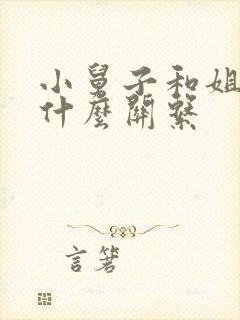 小舅子和姐
什麼關繫
言箸